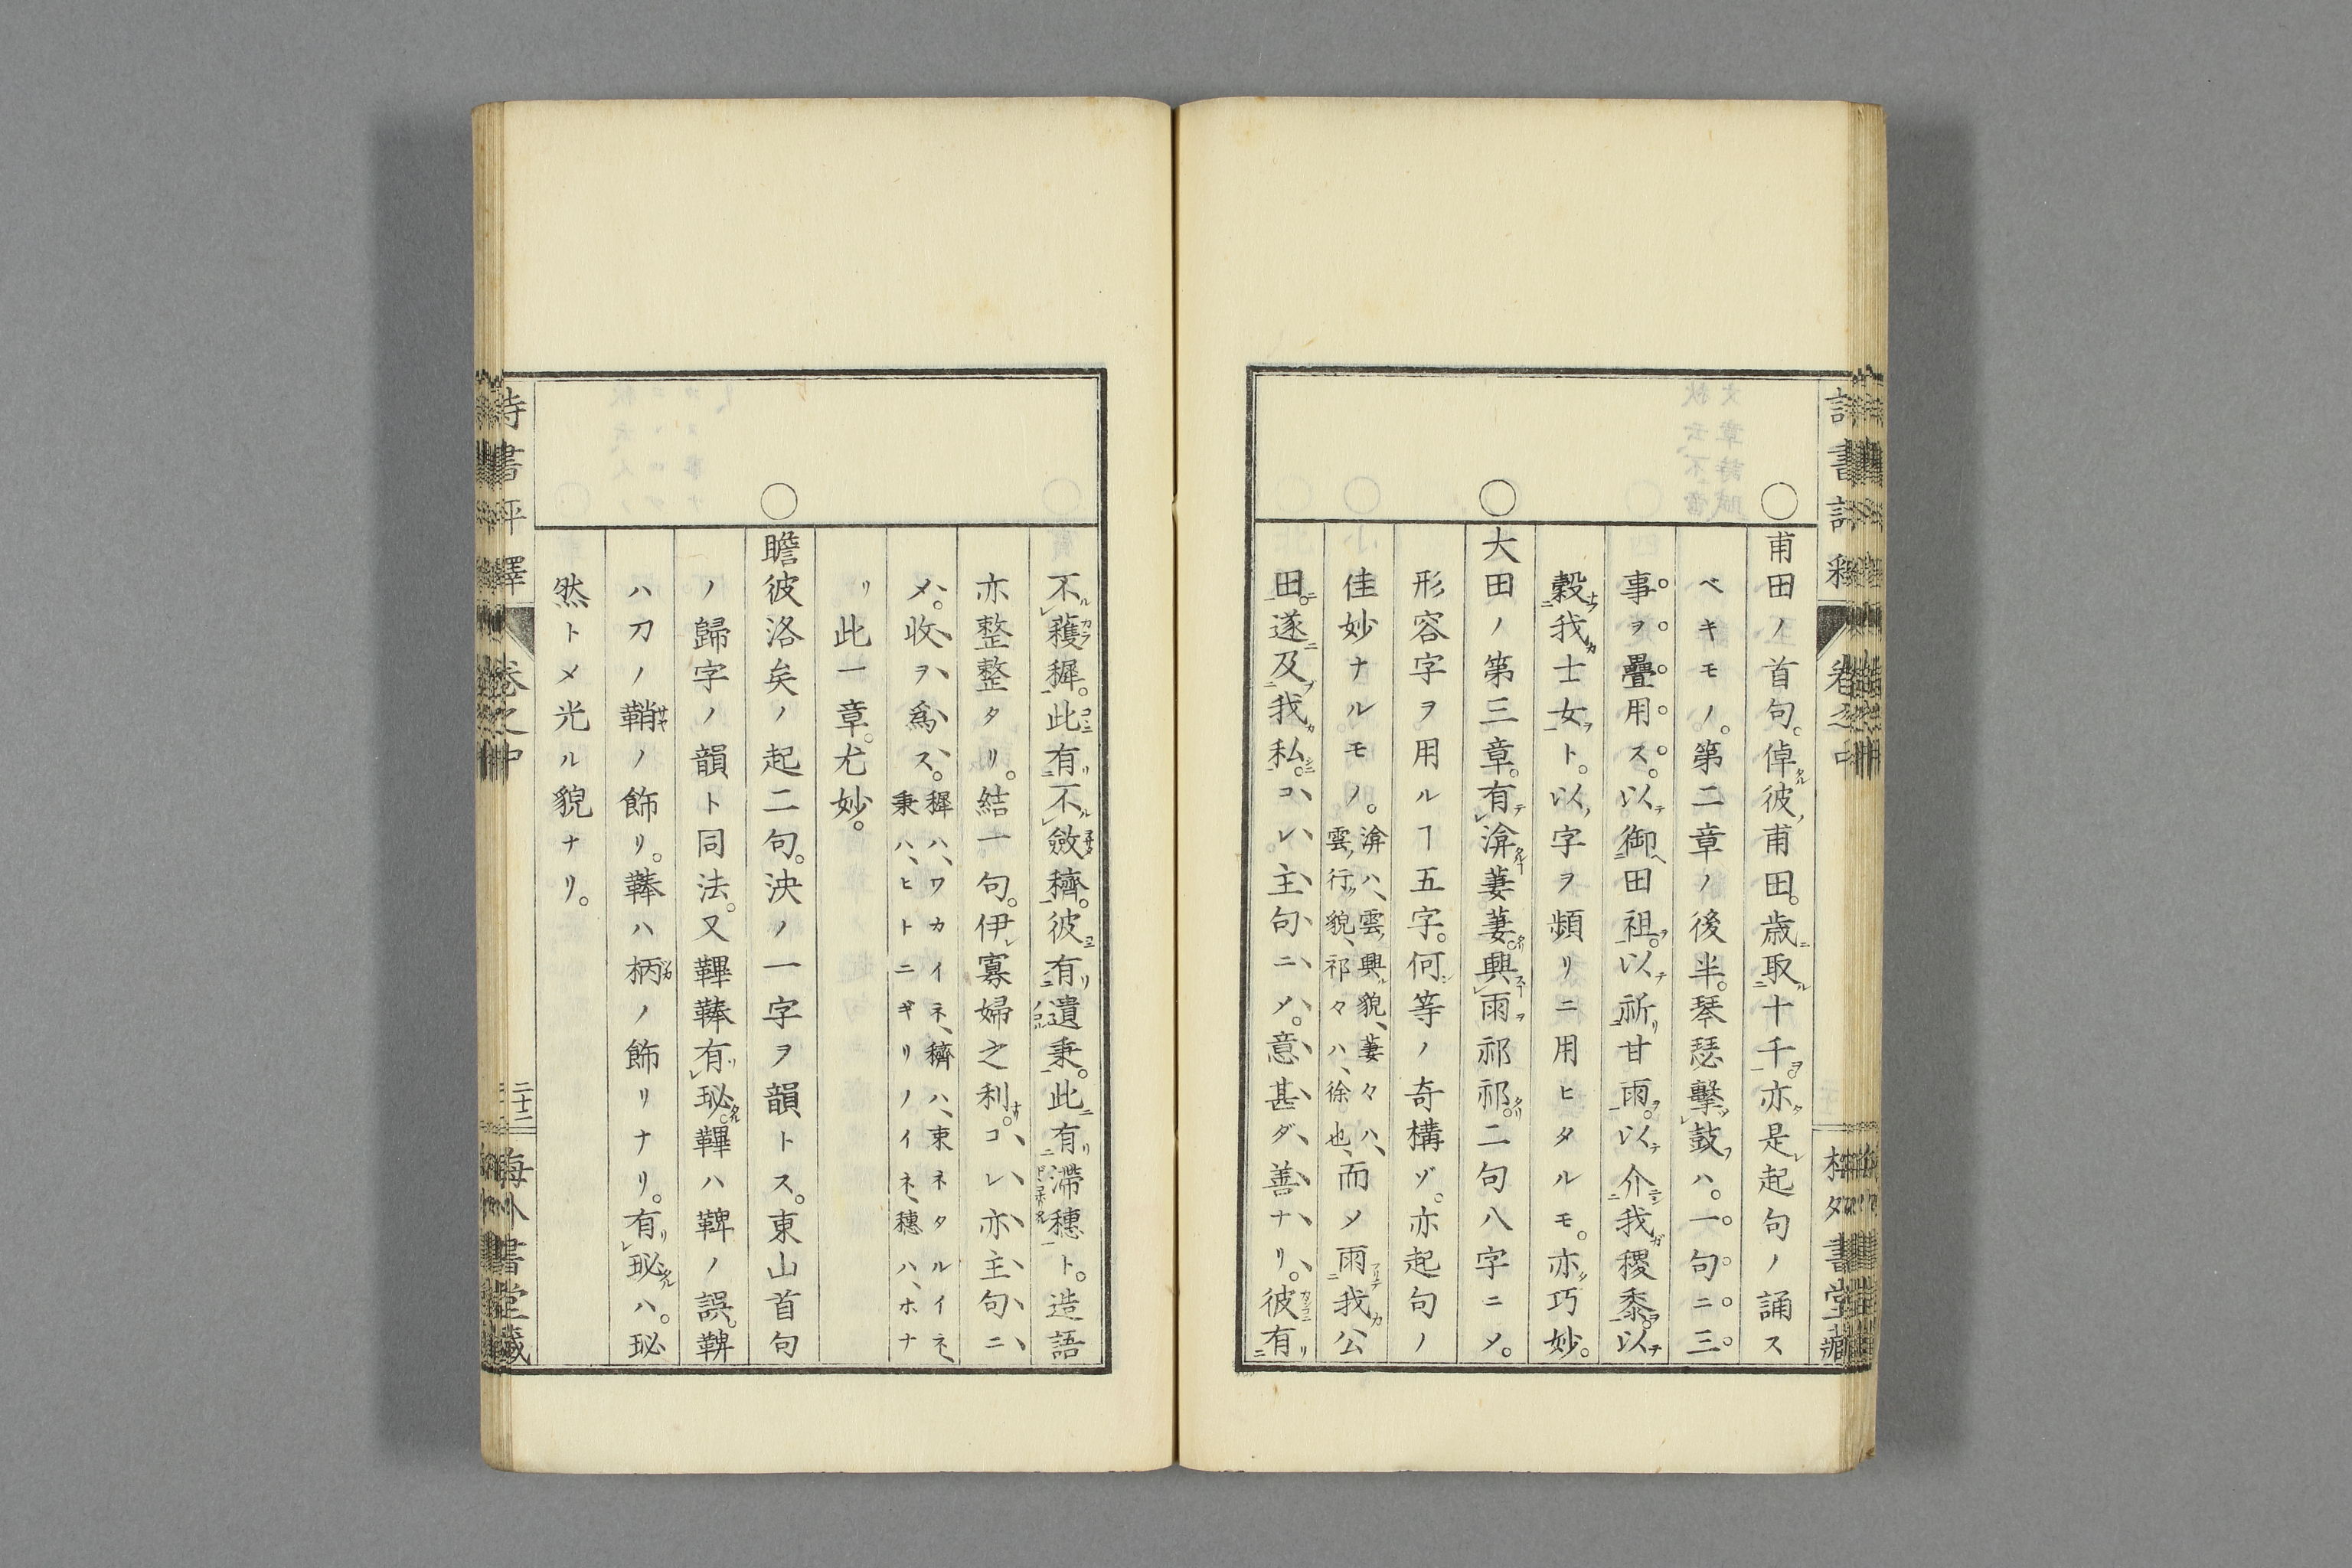 甫田ノ首句。倬彼甫田。歳取十千。亦是起句ノ誦ス
ベキモノ。第二章ノ後半。琴瑟擊鼓ハ。一句ニ三
事ヲ疊用ス。以御田祖。以祈甘雨。以介我稷黍。以
穀我士女ト。以字ヲ頻リニ用ヒタルモ。亦巧妙。
大田ノ第三章。有渰萋萋。興雨祁祁。二句八字ニメ。
形容字ヲ用ルヿ五字。何等ノ奇構ゾ。亦起句ノ
佳妙ナルモノ。渰ハ、雲ノ興ル貌、萋々ハ、雲ノ行ク貌、祁々ハ、徐也、而メ雨我公
田。遂及我私。コレ主句ニメ。意甚ダ善ナリ。彼有
不穫穉。此有不斂穧。彼有遺秉。此有滯穗ト。造語
亦整整タリ。結一句。伊寡婦之利。コレ亦主句ニ
メ。收ヲ爲ス。穉ハ、ワカイネ、穧ハ、束ネタルイネ、秉ハ、ヒトニギリノイネ、穗ハ、ホナ
リ此一章。尤妙。
瞻彼洛矣ノ起二句。泱ノ一字ヲ韻トス。東山首句
ノ歸字ノ韻ト同法。又鞸鞛有珌。鞸ハ鞞ノ誤。鞞
ハ刀ノ鞘ノ飾リ。鞛ハ柄ノ飾リナリ。有珌ハ。珌
然トメ光ル貌ナリ。
詩書評釋
卷之中
二十二